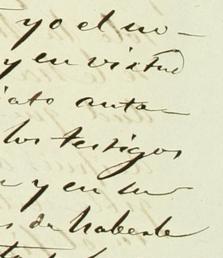 yo el no-
y en virtud
iato anta-
los testigos
y en su
de haberle